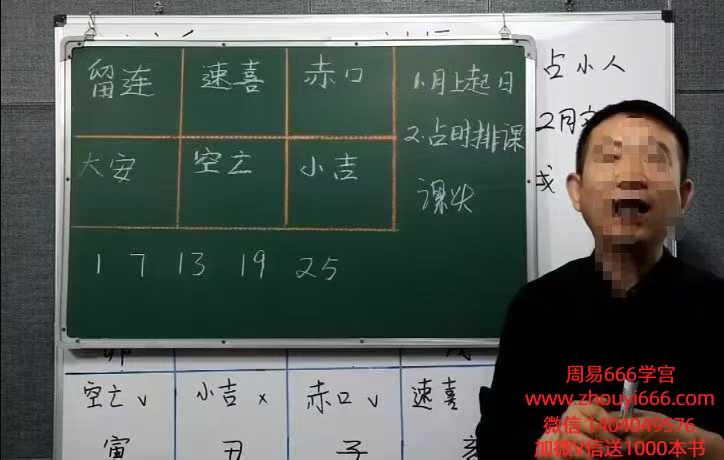 留连 速喜 赤口
大安 空亡 小吉
1.月上起日
2.占时排课
课头
1 7 13 19 25
占小人
2月
空亡√ 小吉× 赤口√ 速喜
寅 丑 子
周易666学宫
www.zhouyi666.com
微信 1404049576
加微V信送1000本书